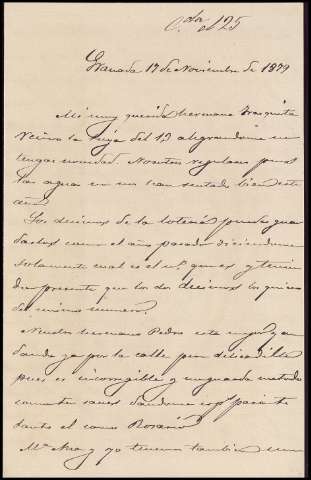 C.da el 25
Granada 17 de Noviembre de 1879
Mi muy querida hermana Frasquita
Recivo la tuya del 13 alegrandome no
tengas novedad. Nosotros regulares pues
las aguas no nos han sentado bien este
año.
Los decimos de la loteria puedes guar
darlos como el año pasado diciendome
solamente cual es el nº que es y tenien
do presente que los dos decimos los quiero
del mismo numero.
Nuestro hermano Pedro esta mejor y an
dando ya por la calle pero delicadillo
pues es incorregible y no guarda metodo
cometiendo
dandome
como Rosario
Mª Ana y yo tenemos tambien